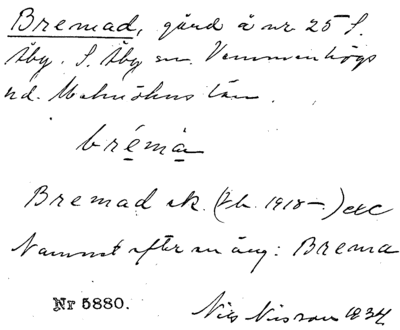 Bremad, gård å nr 25 S.
Åby. S. Åby sn. Vemmenhögs
hd. Malmöhus län.
brémà
Bremad ek. (Jb. 1918–) etc
Namnet efter en äng: Brema
Nr 5880.
Nils Nilsson 1934